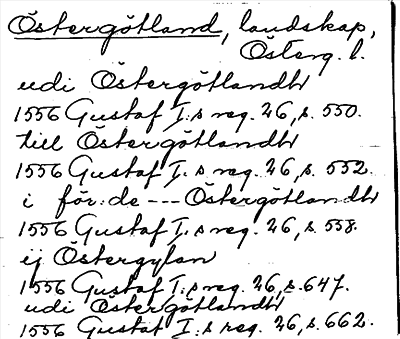 Östergötland, landskap,
Österg. l.
udi Östergötlandh
1556 Gustaf I:s reg. 26, s. 550.
till Östergötlandh
1556 Gustaf I:s reg. 26, s. 552.
i för:de --- Östergötlandh
1556 Gustaf I:s reg. 26, s. 558.
ij Östergylan
1556 Gustaf I:s reg. 26, s. 647.
udi Östergötlandh
1556 Gustaf I:s reg. 26, s. 662.